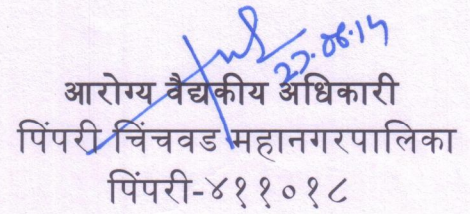 27.06.14
आरोग्य वैद्यकीय अधिकारी
पिंपरी चिंचवड महानगरपालिका
पिंपरी-४११०१८